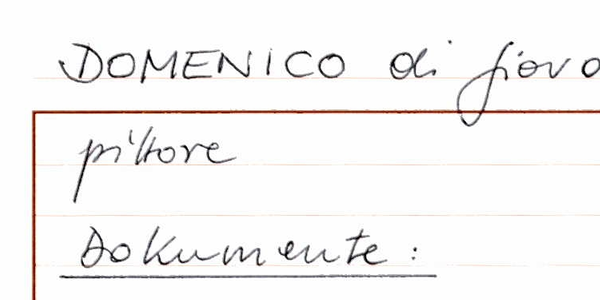 DOMENICO di giova
pittore
Dokumente: